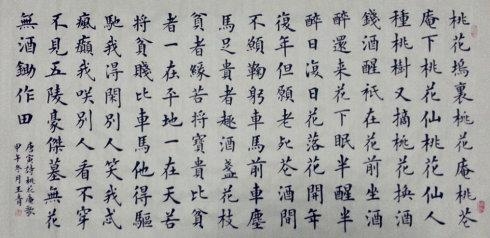 桃花塢裏桃花庵桃花
庵下桃花仙桃花仙人
種桃樹又摘桃花換酒
錢酒醒衹在花前坐酒
醉還来花下眠半醒半
醉日復日花落花開年
復年但願老死花酒間
不願鞠躬車馬前車塵
馬足貴者趣酒盞花枝
貧者緣若將富貴比貧
者一在平地一在天若
將貧賤比車馬他得驅
馳我得閑別人笑我忒
瘋癲我咲別人看不穿
不見五陵豪傑墓無花
無酒鋤作田
唐寅詩桃花庵歌
甲午冬月王青